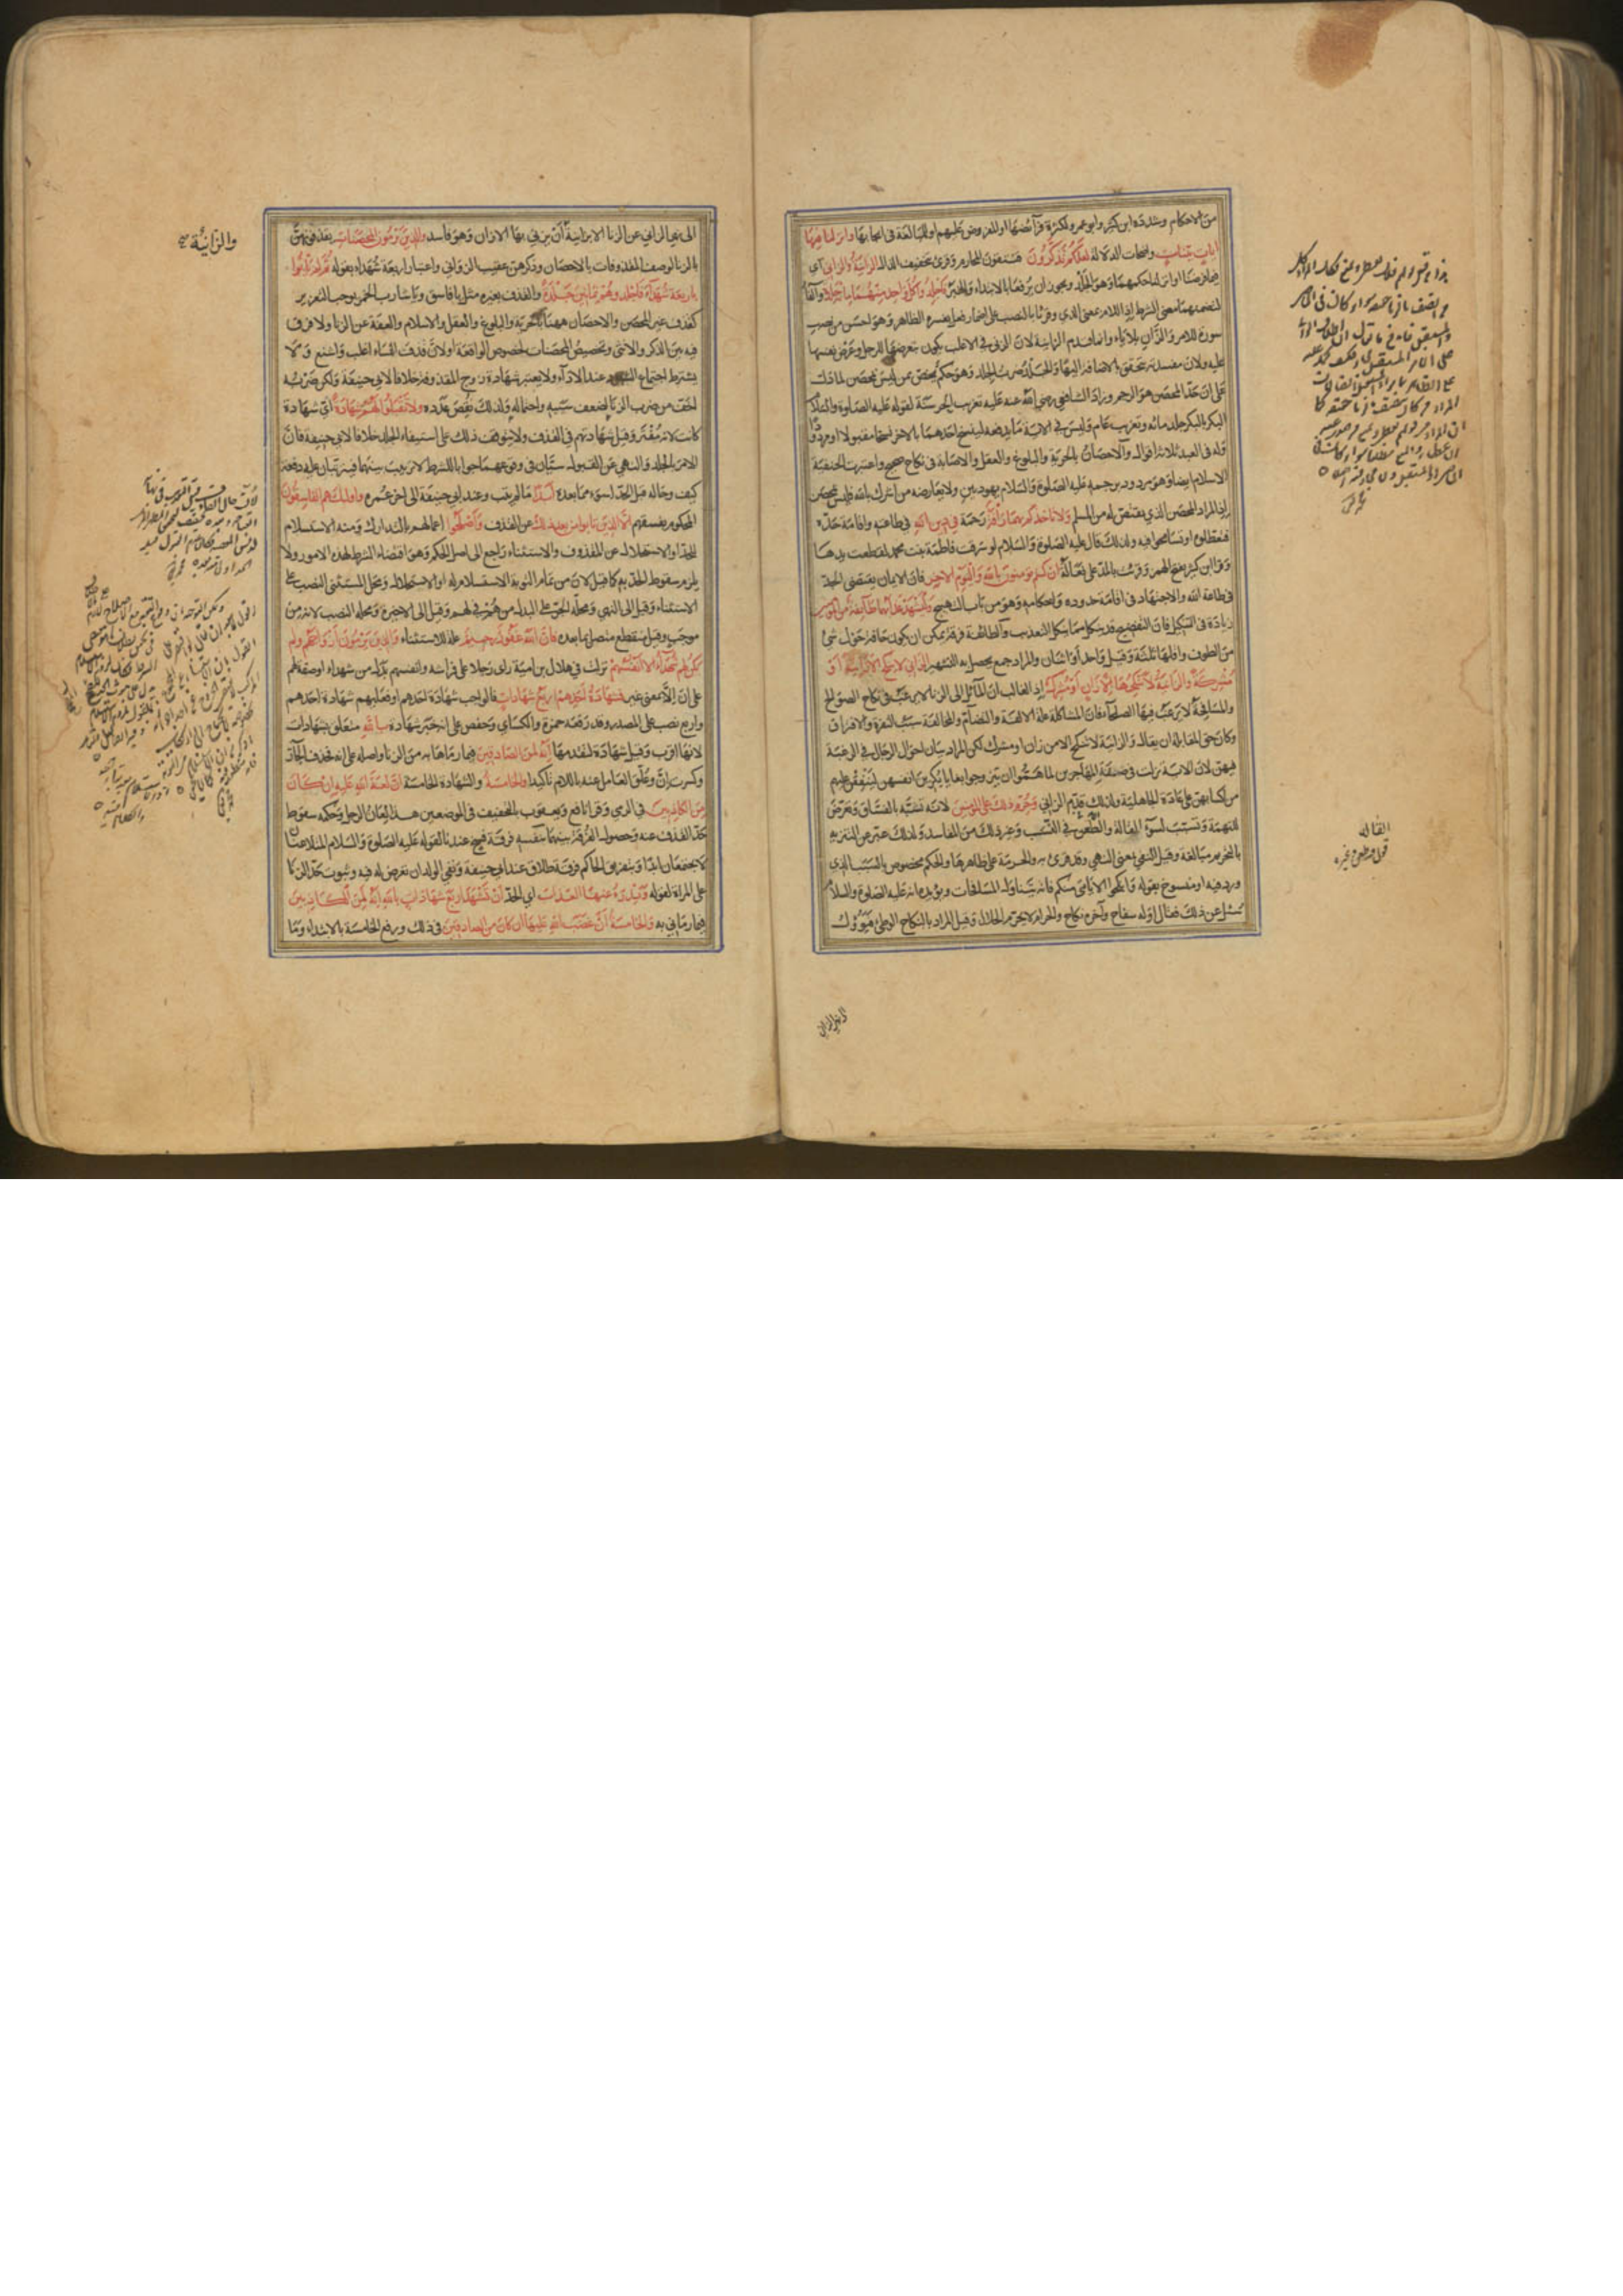 من الاحكام وشدده ابن كثير وابو عمرو لكثرة فرائضها او المفروض عليهم او للمبالغة في ايجابها وانزلنا فيها
ايات بينات واضحات الدلالة لعلكم تذكرون فتتقون المحارم وقرئ بتخفيف الذال الزانية والزاني اي
فيما فرضنا او انزلنا حكمهما وهو الجلد ويجوز ان يرفعا بالابتداء والخبر فاجلدوا كل واحد منهما مائة جلدة والفاء
لتضمنهما معنى الشرط اذ اللام بمعنى الذي وقرئا بالنصب على اضمار فعل يفسره الظاهر وهو احسن من نصب
سورة للامر والزان بلا ياء وانما قدم الزانية لان الزنى في الاغلب يكون بتعرضها للرجل وعرض نفسها
عليه ولان مفسدته تتحقق بالاضافة اليها والجلد ضرب الجلد وهو حكم يختص بمن ليس بمحصن لما دل
على ان حد المحصن هو الرجم وزاد الشافعي رضي الله عنه عليه تغريب الحر سنة لقوله عليه الصلوة والسلام
البكر بالبكر جلد مائة وتغريب عام وليس في الاية ما يدفعه لينسخ احدهما بالاخر نسخا مقبولا او مردودا
وله في العبد ثلاثة اقوال والاحصان بالحرية والبلوغ والعقل والاصابة في نكاح صحيح واعتبرت الحنفية
الاسلام ايضا وهو مردود برجمه عليه الصلوة والسلام يهوديين ولا يعارضه من اشرك بالله فليس بمحصن
اذ المراد المحصن الذي يقتص له من المسلم ولا تاخذكم بهما رأفة رحمة في دين الله في طاعته واقامة حده
فتعطلوه او تسامحوا فيه ولذلك قال عليه الصلوة والسلام لو سرقت فاطمة بنت محمد لقطعت يدها
وقرا ابن كثير بفتح الهمزة وقرئت بالمد على فعالة ان كنتم تؤمنون بالله واليوم الاخر فان الايمان يقتضي الجد
في طاعة الله والاجتهاد في اقامة حدوده واحكامه وهو من باب التهييج وليشهد عذابهما طائفة من المؤمنين
زيادة في التنكيل فان التفضيح قد ينكل ما ينكل التعذيب والطائفة فرقة يمكن ان يكون حافة حول شئ
من الطوف واقلها ثلثة وقيل واحد او اثنان والمراد جمع يحصل به التشهير الزاني لا ينكح الا زانية او
مشركة والزانية لا ينكحها الا زان او مشرك اذ الغالب ان المائل الى الزنا لا يرغب في نكاح الصوالح
والمسافحة لا يرغب فيها الصلحاء فان المشاكلة علة الالفة والتضام والمخالفة سبب النفرة والافتراق
وكان حق المقابلة ان يقال والزانية لا تنكح الا من زان او مشرك لكن المراد بيان احوال الرجال في الرغبة
فيهن لان الاية نزلت في ضعفة المهاجرين لما هموا ان يتزوجوا بغايا يكرين انفسهن لينفقن عليهم
من اكسابهن على عادة الجاهلية ولذلك قدم الزاني وحرم ذلك على المؤمنين لانه تشبه بالفساق وتعرض
للتهمة وتسبب لسوء القالة والطعن في النسب وغير ذلك من المفاسد ولذلك عبر عن التنزيه
بالتحريم مبالغة وقيل النفي بمعنى النهي وقد قرئ به والحرمة على ظاهرها والحكم مخصوص بالسبب الذي
ورد فيه او منسوخ بقوله وانكحوا الايامى منكم فانه يتناول المسافحات ويؤيده انه عليه الصلوة والسلام
سئل عن ذلك فقال اوله سفاح وآخره نكاح والحرام لا يحرم الحلال وقيل المراد بالنكاح الوطئ فيؤول
القالة
الى نهي الزاني عن الزنا الا بزانية ان يزني بها الا زان وهو فاسد والذين يرمون المحصنات يقذفونهن
بالزنا لوصف المقذوفات بالاحصان وذكرهن عقيب الزواني واعتبار اربعة شهداء بقوله ثم لم ياتوا
باربعة شهداء فاجلدوهم ثمانين جلدة والقذف بغيره مثل يا فاسق ويا شارب الخمر يوجب التعزير
كقذف غير المحصن والاحصان ههنا بالحرية والبلوغ والعقل والاسلام والعفة عن الزنا ولا فرق
فيه بين الذكر والانثى وتخصيص المحصنات لخصوص الواقعة او لان قذف النساء اغلب واشنع ولا
يشترط اجتماع الشهود عند الاداء ولا يعتبر شهادة زوج المقذوفة خلافا لابي حنيفة ولكن ضربه
اخف من ضرب الزنا لضعف سببه واحتماله ولذلك نقص عدده ولا تقبلوا لهم شهادة اي شهادة
كانت لانه مفتر وقيل شهادتهم في القذف ولا يتوقف ذلك على استيفاء الجلد خلافا لابي حنيفة فان
الامر بالجلد والنهي عن القبول سيان في وقوعهما جوابا للشرط لا ترتيب بينهما فيترتبان عليه دفعة
كيف وحاله قبل الحد اسوء مما بعده ابدا ما لم يتب وعند ابي حنيفة الى اخر عمره واولئك هم الفاسقون
المحكوم بفسقهم الا الذين تابوا من بعد ذلك عن القذف واصلحوا اعمالهم بالتدارك ومنه الاستسلام
للحد او الاستحلال عن المقذوف والاستثناء راجع الى اصل الحكم وهو اقتضاء الشرط لهذه الامور ولا
يلزم سقوط الحد به كما قيل لان من تمام التوبة الاستسلام له او الاستحلال ومحل المستثنى النصب على
الاستثناء وقيل الى النهي ومحله الجر على البدل من هم في لهم وقيل الى الاخيرة ومحله النصب لانه من
موجب وقيل منقطع متصل بما بعده فان الله غفور رحيم علة للاستثناء والذين يرمون ازواجهم ولم
يكن لهم شهداء الا انفسهم نزلت في هلال بن امية راى رجلا على فراشه وانفسهم بدل من شهداء او صفة لهم
على ان الا بمعنى غير فشهادة احدهم اربع شهادات فالواجب شهادة احدهم او فعليهم شهادة احدهم
واربع نصب على المصدر وقد رفعه حمزة والكسائي وحفص على انه خبر شهادة بالله متعلق بشهادات
لانها اقرب وقيل بشهادة لتقدمها انه لمن الصادقين فيما رماها به من الزنا واصله على انه فحذف الجار
وكسرت ان وعلق العامل عنه باللام تاكيدا والخامسة والشهادة الخامسة ان لعنة الله عليه ان كان
من الكاذبين في الرمي وقرا نافع ويعقوب بالتخفيف في الموضعين هذا لعان الرجل وحكمه سقوط
حد القذف عنه وحصول الفرقة بينهما بنفسه فرقة فسخ عندنا لقوله عليه الصلوة والسلام المتلاعنان
لا يجتمعان ابدا وبتفريق الحاكم فرقة طلاق عند ابي حنيفة ونفي الولد ان تعرض له فيه وثبوت حد الزنا
على المراة لقوله ويدرؤ عنها العذاب اي الحد ان تشهد اربع شهادات بالله انه لمن الكاذبين
فيما رماني به والخامسة ان غضب الله عليها ان كان من الصادقين في ذلك ورفع الخامسة بالابتداء وما
والزانية